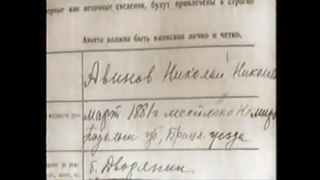 верные или неточные сведения, будут привлечены к строгой
Анкета должна быть написана лично и четко.
Авинов Николай Никола
март 1881г местечко Немир
Подольск губ, Брацл. уезда
б. Дворянин